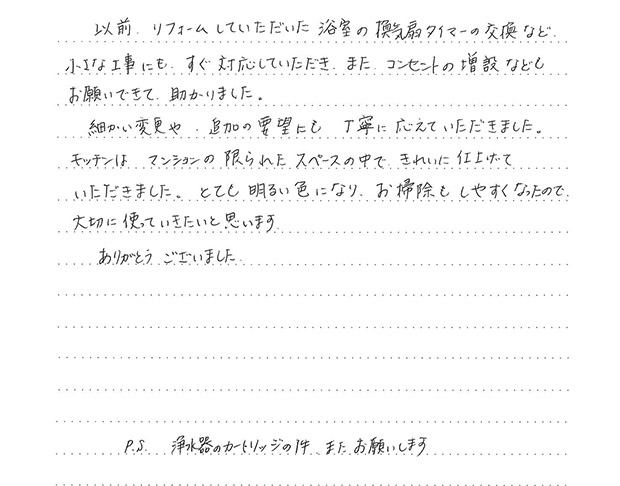 以前、リフォームしていただいた浴室の換気扇タイマーの交換など、
小さな工事にも、すぐ対応していただき、また、コンセントの増設なども
お願いできて、助かりました。
細かい変更や、追加の要望にも、丁寧に応えていただきました。
キッチンは、マンションの限られたスペースの中で、きれいに仕上げて
いただきました。とても明るい色になり、お掃除もしやすくなったので、
大切に使っていきたいと思います
ありがとうございました。
P.S. 浄水器のカートリッジの件、またお願いします